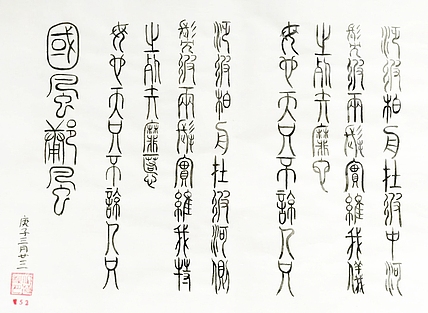 汎彼柏舟在彼中河
髧彼兩髦實維我儀
之死矢靡它
母也天只不諒人只
汎彼柏舟在彼河側
髧彼兩髦實維我特
之死矢靡慝
母也天只不諒人只
國風鄘風
庚子三月廿